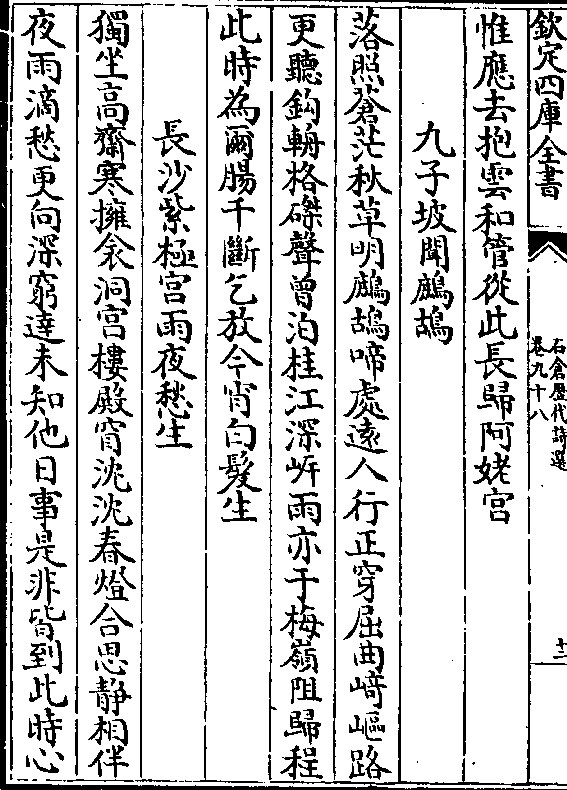 欽定四庫全書
石倉歷代詩選
卷九十八
十二
惟應去抱雲和管從此長歸阿姥宮
九子坡聞鷓鴣
落照蒼茫秋草明鷓鴣啼處遠人行正穿屈曲崎嶇路
更聽鈎輈格磔聲曾泊桂江深岍雨亦于梅嶺阻歸程
此時為爾腸千斷乞放今宵白髮生
長沙紫極宮雨夜愁坐
獨坐高齋寒擁衾洞宮樓殿窅沈沈春燈含思靜相伴
夜雨滴愁更向深窮達未知他日事是非皆到此時心